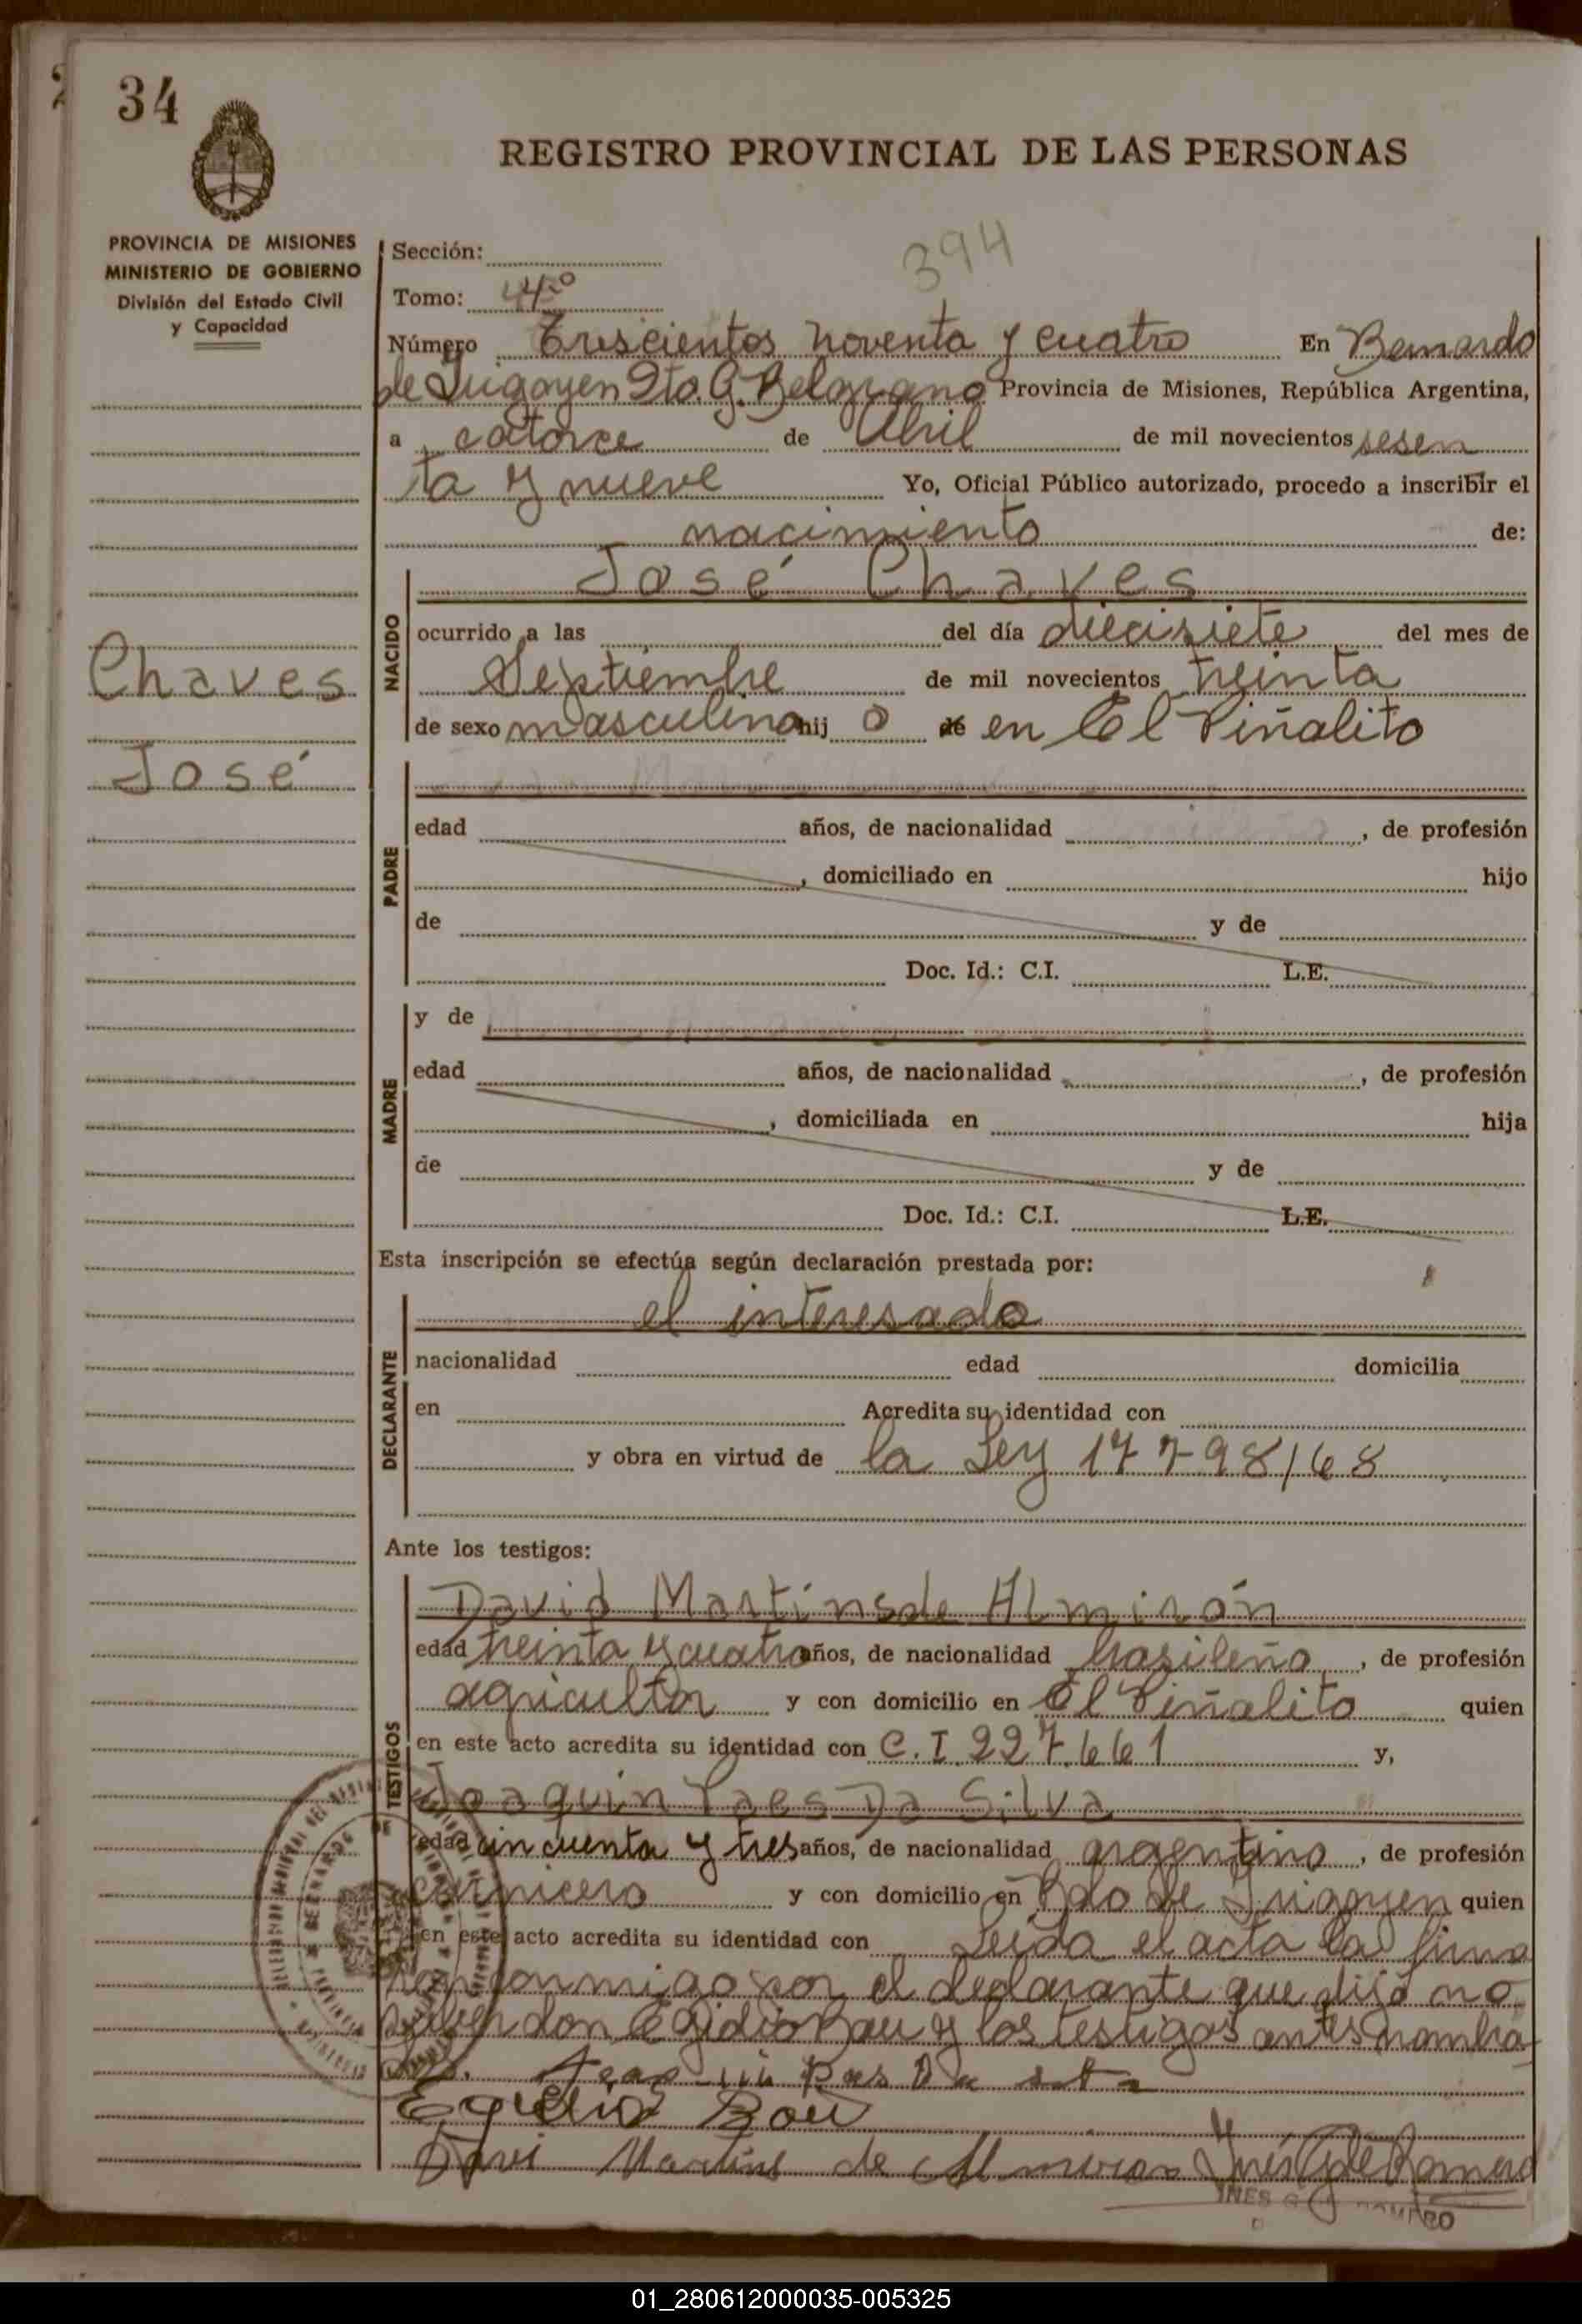 34
REGISTRO PROVINCIAL DE LAS PERSONAS
PROVINCIA DE MISIONES
MINISTERIO DE GOBIERNO
División del Estado Civil
y Capacidad
394
Sección:
Tomo: 4º
Número Trescientos noventa y cuatro En Bernardo
de Irigoyen Dto. G. Belgrano Provincia de Misiones, República Argentina,
a catorce de Abril de mil novecientos sesen
ta y nueve Yo, Oficial Público autorizado, procedo a inscribir el
nacimiento de:
José Chaves
Chaves
José
NACIDO
ocurrido a las del día diecisiete del mes de
Septiembre de mil novecientos treinta
de sexo masculino hij o de en El Piñalito
PADRE
edad años, de nacionalidad , de profesión
, domiciliado en hijo
de y de
Doc. Id.: C.I. L.E.
MADRE
y de
edad años, de nacionalidad , de profesión
, domiciliada en hija
de y de
Doc. Id.: C.I. L.E.
Esta inscripción se efectúa según declaración prestada por:
DECLARANTE
el interesado
nacionalidad edad domicilia
en Acredita su identidad con
y obra en virtud de la Ley 17798/68
Ante los testigos:
TESTIGOS
David Martíns de Almirón
edad treinta y cuatro años, de nacionalidad brasileña, de profesión
agricultor y con domicilio en El Piñalito quien
en este acto acredita su identidad con C.I. 227.661 y,
Joaquin Paes Da Silva
edad cincuenta y tres años, de nacionalidad argentino, de profesión
carnicero y con domicilio en Bdo de Irigoyen quien
en este acto acredita su identidad con Leída el acta la firma
conmigo por el declarante que dijo no
saber don Egidio Bau y los testigos antes nombra
dos.
Egidio Bau
Davi Martins de Almiron Inés G de Romero
INES G DE ROMERO
01_280612000035-005325